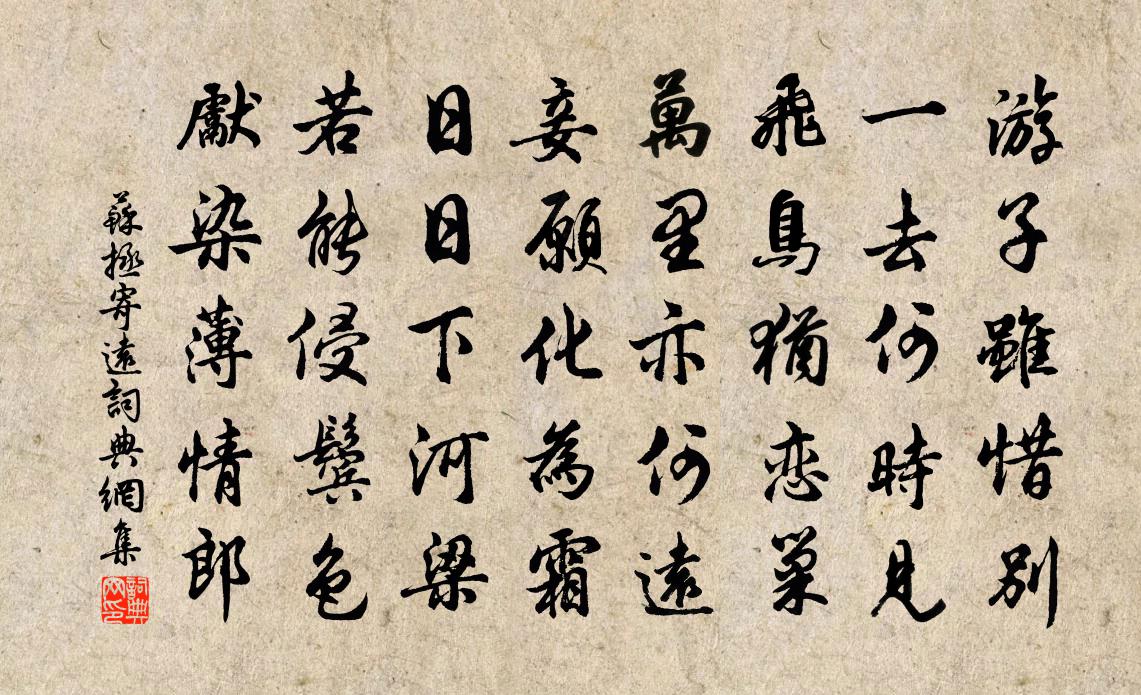 游子雖惜别
一去何時見
飛鳥猶恋巢
萬里亦何遠
妾願化為霜
日日下河梁
若能侵鬓色
獻染薄情郎
蘇拯寄遠詞典網集
詞典网印